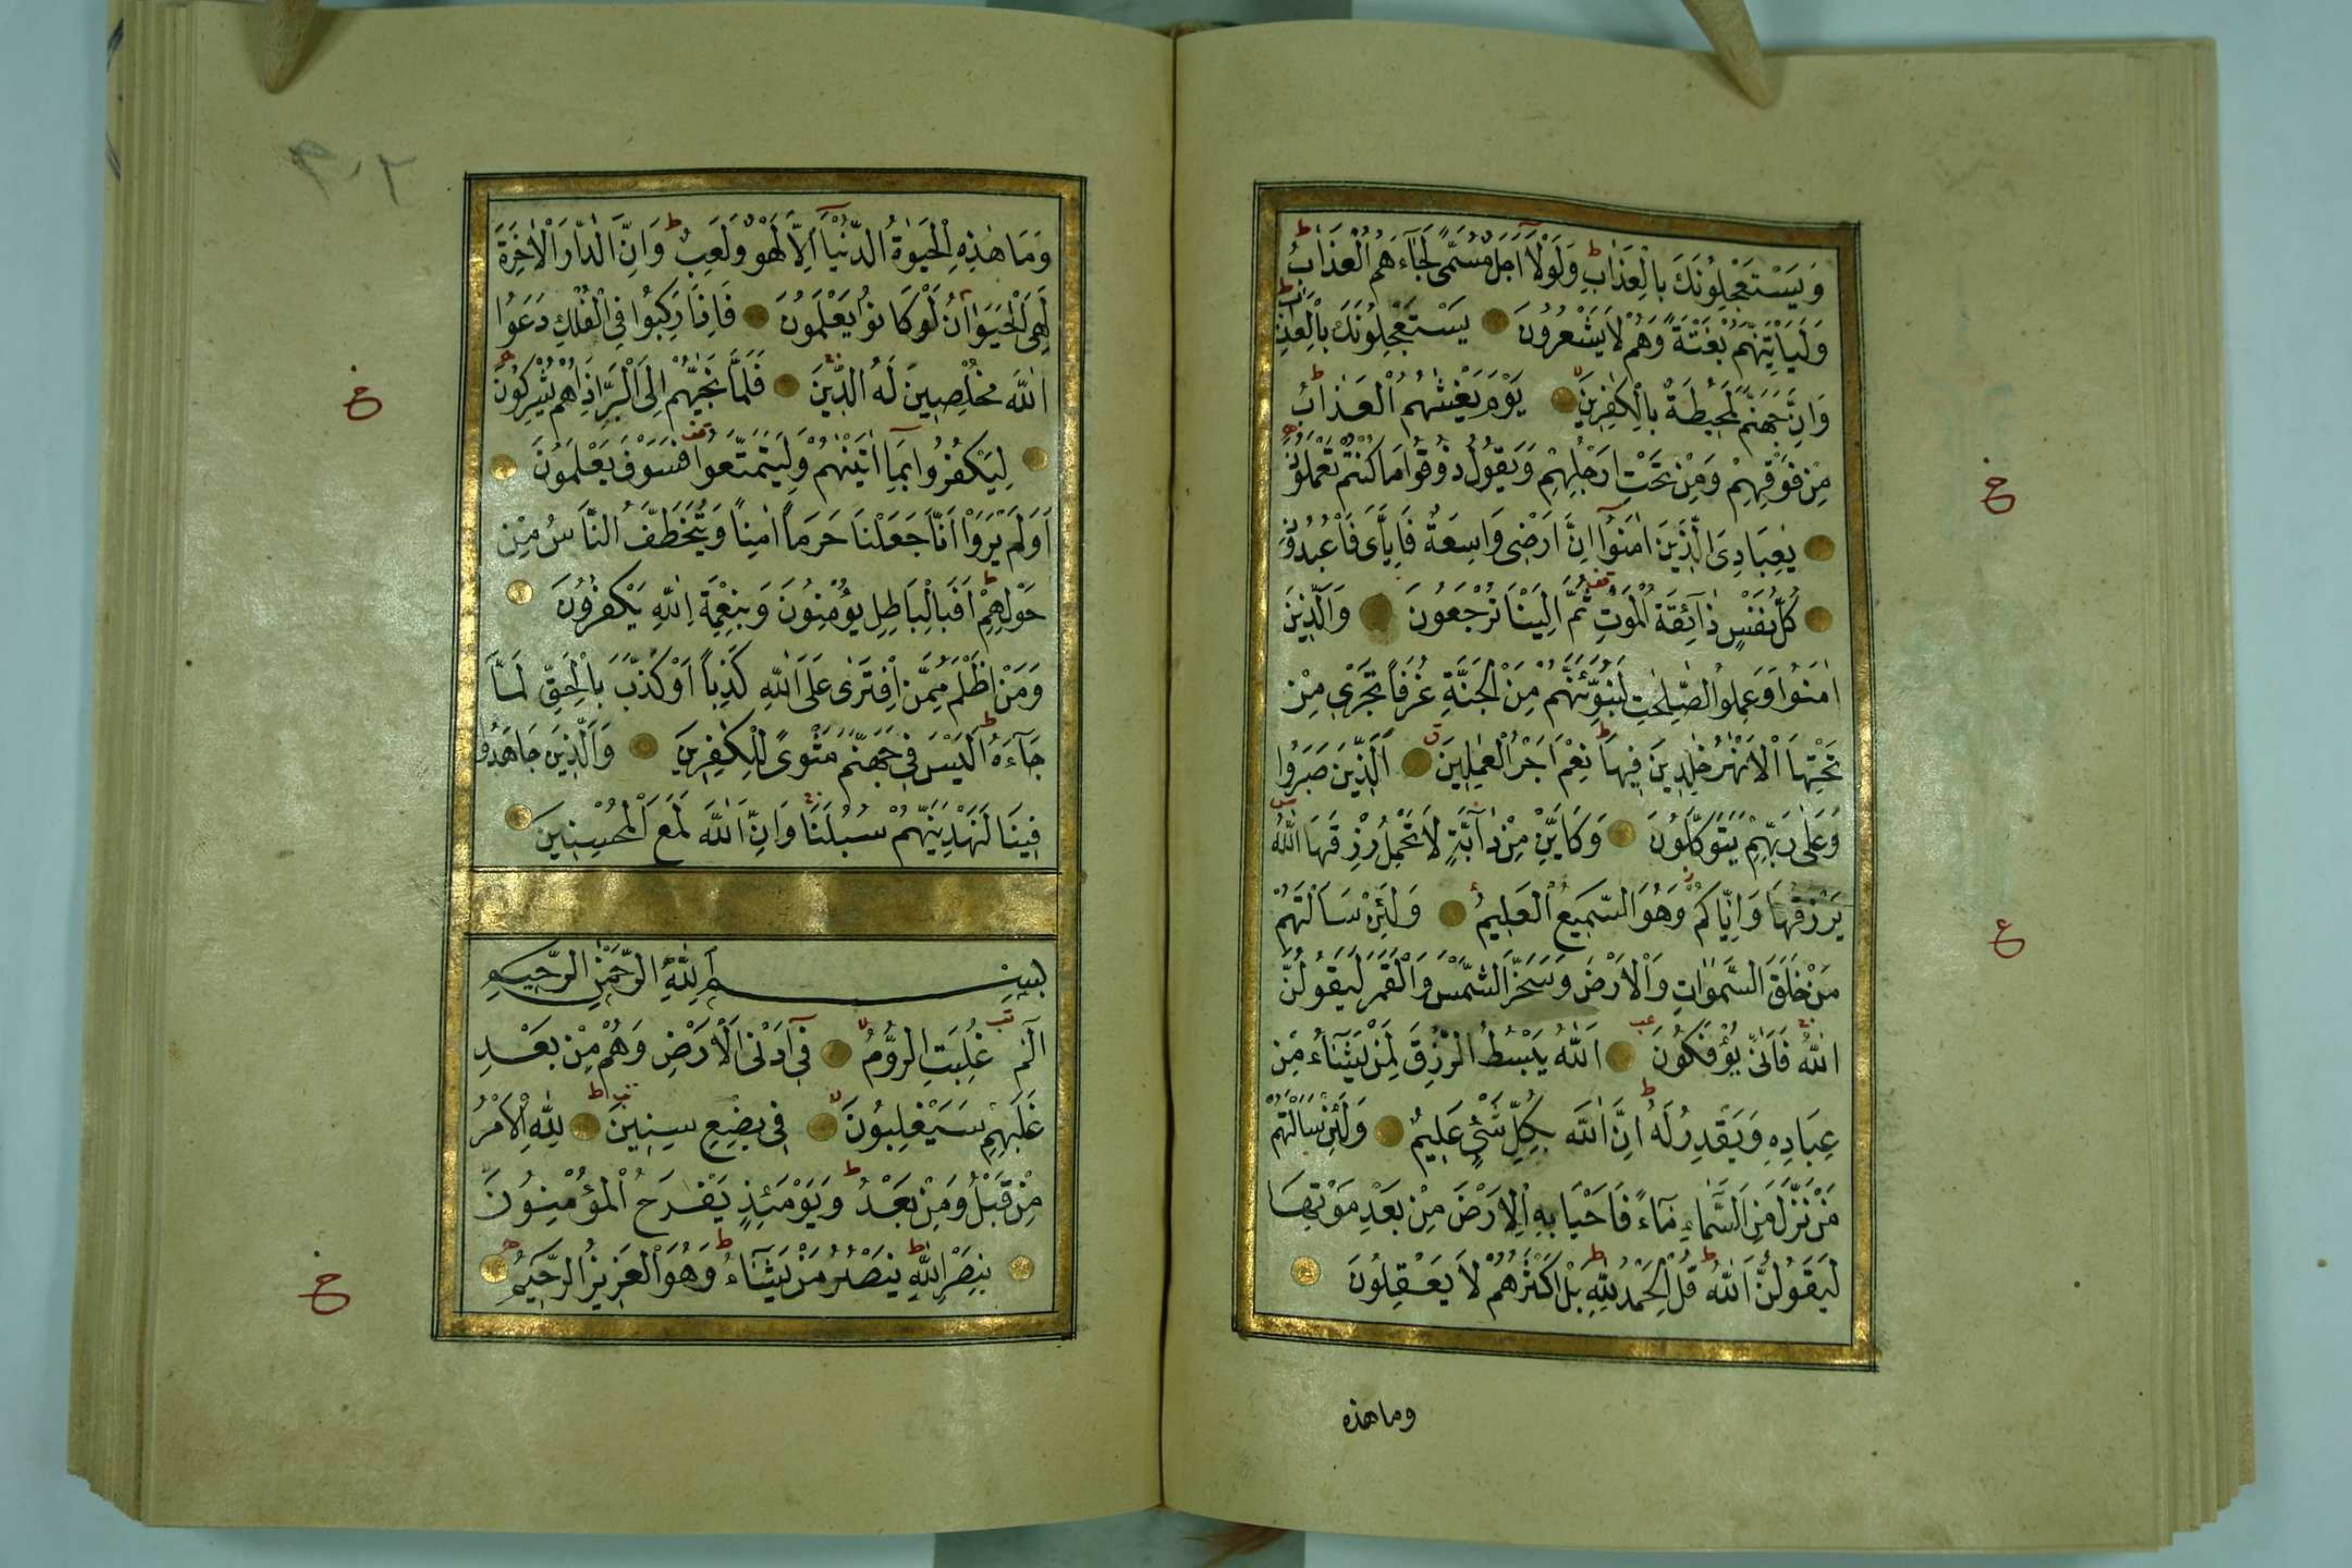 وَيَسْتَعْجِلُونَكَ بِالْعَذَابِ وَلَوْلَا اَجَلٌ مُسَمًّى لَجَاءَهُمُ الْعَذَابُ
وَلَيَاْتِيَنَّهُمْ بَغْتَةً وَهُمْ لَا يَشْعُرُونَ يَسْتَعْجِلُونَكَ بِالْعَذَابِ
وَاِنَّ جَهَنَّمَ لَمُحِيطَةٌ بِالْكٰفِرِينَ يَوْمَ يَغْشٰيهُمُ الْعَذَابُ
مِنْ فَوْقِهِمْ وَمِنْ تَحْتِ اَرْجُلِهِمْ وَيَقُولُ ذُوقُوا مَا كُنْتُمْ تَعْمَلُونَ
يٰعِبَادِيَ الَّذِينَ اٰمَنُوا اِنَّ اَرْضِى وَاسِعَةٌ فَاِيَّاىَ فَاعْبُدُونِ
كُلُّ نَفْسٍ ذَائِقَةُ الْمَوْتِ ثُمَّ اِلَيْنَا تُرْجَعُونَ وَالَّذِينَ
اٰمَنُوا وَعَمِلُوا الصّٰلِحٰتِ لَنُبَوِّئَنَّهُمْ مِنَ الْجَنَّةِ غُرَفًا تَجْرِى مِنْ
تَحْتِهَا الْاَنْهٰرُ خٰلِدِينَ فِيهَا نِعْمَ اَجْرُ الْعٰمِلِينَ اَلَّذِينَ صَبَرُوا
وَعَلٰى رَبِّهِمْ يَتَوَكَّلُونَ وَكَاَيِّنْ مِنْ دَابَّةٍ لَا تَحْمِلُ رِزْقَهَا اللّٰهُ
يَرْزُقُهَا وَاِيَّاكُمْ وَهُوَ السَّمِيعُ الْعَلِيمُ وَلَئِنْ سَاَلْتَهُمْ
مَنْ خَلَقَ السَّمٰوَاتِ وَالْاَرْضَ وَسَخَّرَ الشَّمْسَ وَالْقَمَرَ لَيَقُولُنَّ
اللّٰهُ فَاَنّٰى يُؤْفَكُونَ اَللّٰهُ يَبْسُطُ الرِّزْقَ لِمَنْ يَشَاءُ مِنْ
عِبَادِهِ وَيَقْدِرُ لَهُ اِنَّ اللّٰهَ بِكُلِّ شَىْءٍ عَلِيمٌ وَلَئِنْ سَاَلْتَهُمْ
مَنْ نَزَّلَ مِنَ السَّمَاءِ مَاءً فَاَحْيَا بِهِ الْاَرْضَ مِنْ بَعْدِ مَوْتِهَا
لَيَقُولُنَّ اللّٰهُ قُلِ الْحَمْدُ لِلّٰهِ بَلْ اَكْثَرُهُمْ لَا يَعْقِلُونَ
وما هذه
ع
ع
٢٠٩
وَمَا هٰذِهِ الْحَيٰوةُ الدُّنْيَا اِلَّا لَهْوٌ وَلَعِبٌ وَاِنَّ الدَّارَ الْاٰخِرَةَ
لَهِىَ الْحَيَوَانُ لَوْ كَانُوا يَعْلَمُونَ فَاِذَا رَكِبُوا فِى الْفُلْكِ دَعَوُا
اللّٰهَ مُخْلِصِينَ لَهُ الدِّينَ فَلَمَّا نَجّٰيهُمْ اِلَى الْبَرِّ اِذَا هُمْ يُشْرِكُونَ
لِيَكْفُرُوا بِمَا اٰتَيْنٰهُمْ وَلِيَتَمَتَّعُوا فَسَوْفَ يَعْلَمُونَ
اَوَلَمْ يَرَوْا اَنَّا جَعَلْنَا حَرَمًا اٰمِنًا وَيُتَخَطَّفُ النَّاسُ مِنْ
حَوْلِهِمْ اَفَبِالْبَاطِلِ يُؤْمِنُونَ وَبِنِعْمَةِ اللّٰهِ يَكْفُرُونَ
وَمَنْ اَظْلَمُ مِمَّنِ افْتَرٰى عَلَى اللّٰهِ كَذِبًا اَوْ كَذَّبَ بِالْحَقِّ لَمَّا
جَاءَهُ اَلَيْسَ فِى جَهَنَّمَ مَثْوًى لِلْكٰفِرِينَ وَالَّذِينَ جَاهَدُوا
فِينَا لَنَهْدِيَنَّهُمْ سُبُلَنَا وَاِنَّ اللّٰهَ لَمَعَ الْمُحْسِنِينَ
بِسْمِ اللّٰهِ الرَّحْمٰنِ الرَّحِيمِ
الٓمٓ غُلِبَتِ الرُّومُ فِى اَدْنَى الْاَرْضِ وَهُمْ مِنْ بَعْدِ
غَلَبِهِمْ سَيَغْلِبُونَ فِى بِضْعِ سِنِينَ لِلّٰهِ الْاَمْرُ
مِنْ قَبْلُ وَمِنْ بَعْدُ وَيَوْمَئِذٍ يَفْرَحُ الْمُؤْمِنُونَ
بِنَصْرِ اللّٰهِ يَنْصُرُ مَنْ يَشَاءُ وَهُوَ الْعَزِيزُ الرَّحِيمُ